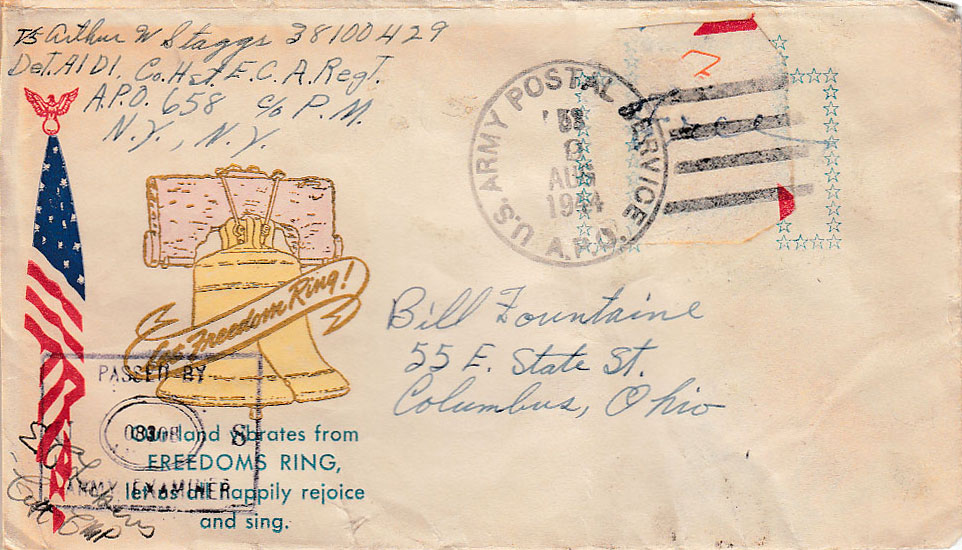 T/5 Arthur W Staggs 38100429
Det. A1D1, Co. Hst. E.C.A. Regt.
A.P.O. 658 c/o P.M.
N.Y., N.Y.
U.S. ARMY POSTAL SERVICE
2
AUG
1944
A.P.O.
Free
Let Freedom Ring!
Bill Fountaine
55 E. State St.
Columbus, Ohio
PASSED BY
S
ARMY EXAMINER
Our land vibrates from
FREEDOMS RING,
let us all happily rejoice
and sing.